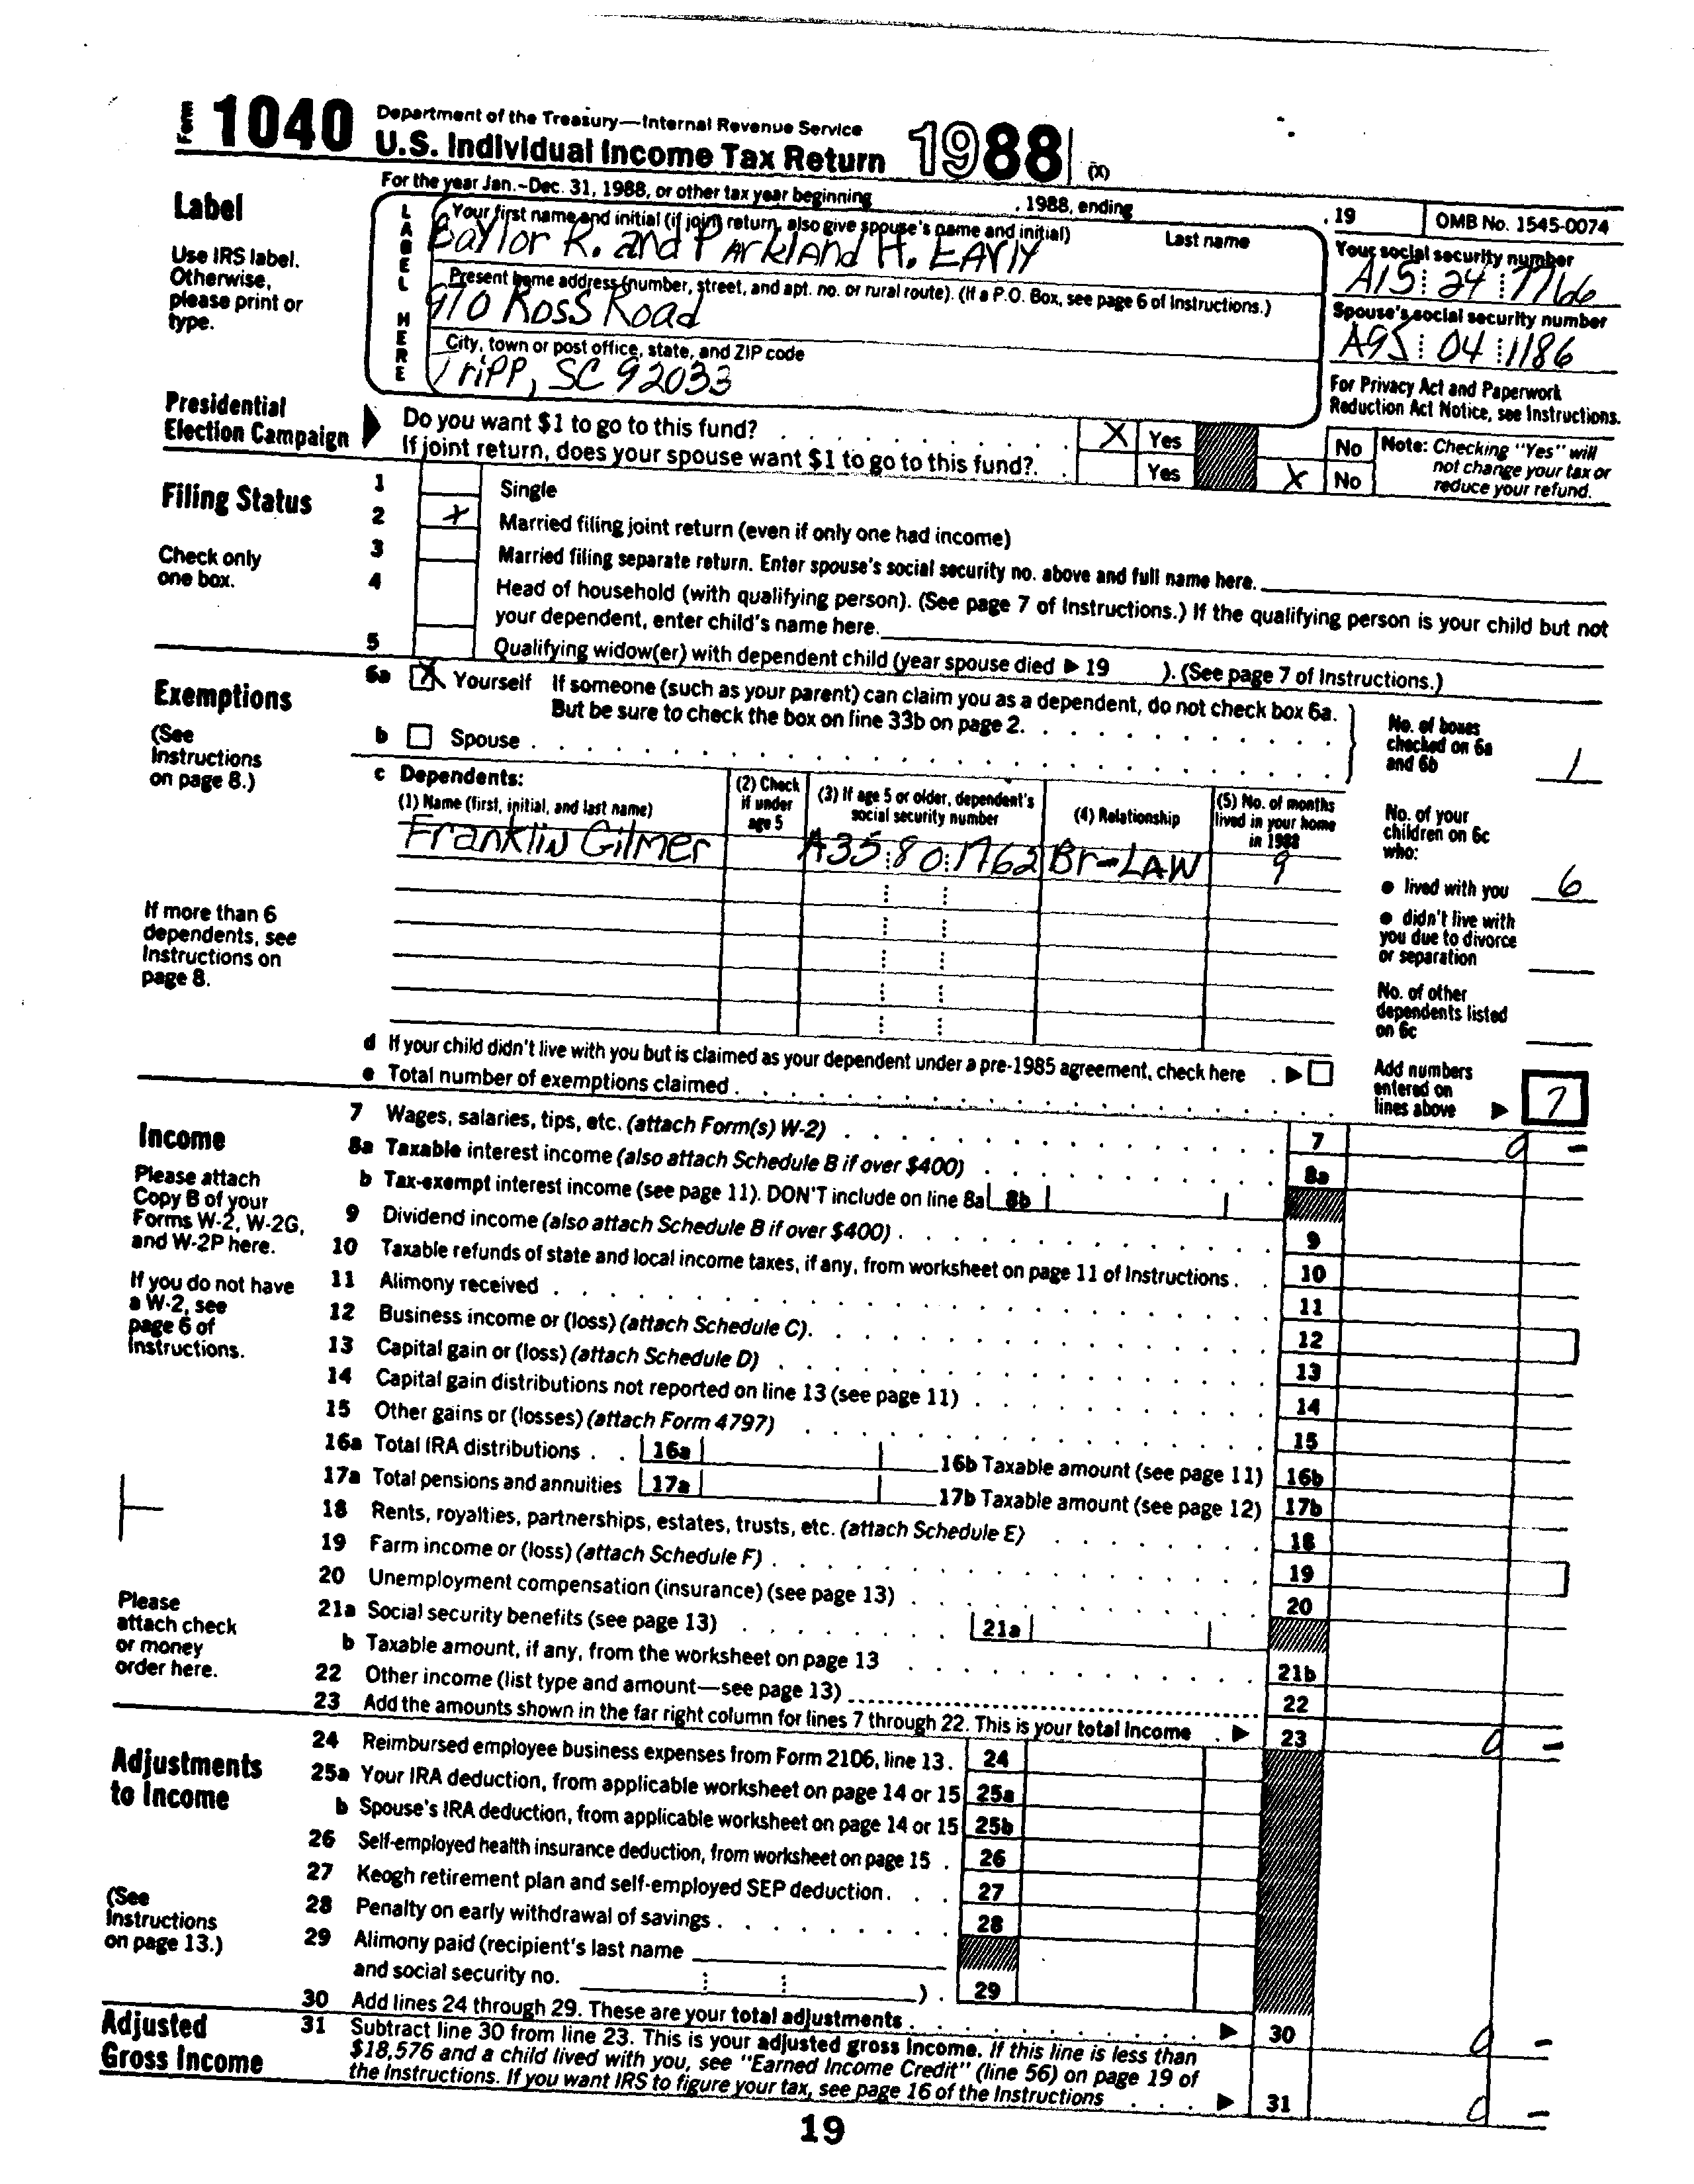 Form 1040 Department of the Treasury—Internal Revenue Service
U.S. Individual Income Tax Return 1988 (X)
For the year Jan.–Dec. 31, 1988, or other tax year beginning , 1988, ending , 19 OMB No. 1545-0074
Label
Use IRS label. Otherwise, please print or type.
LABEL HERE
Your first name and initial (if joint return, also give spouse's name and initial) Last name
Baylor R. and Parkland H. Early
Your social security number
A15 24 7766
Present home address (number, street, and apt. no. or rural route). (If a P.O. Box, see page 6 of Instructions.)
910 Ross Road
Spouse's social security number
A95 04 1186
City, town or post office, state, and ZIP code
Tripp, SC 92033
For Privacy Act and Paperwork Reduction Act Notice, see Instructions.
Presidential Election Campaign
Do you want $1 to go to this fund? X Yes No
If joint return, does your spouse want $1 to go to this fund? Yes X No
Note: Checking "Yes" will not change your tax or reduce your refund.
Filing Status
Check only one box.
1 Single
2 X Married filing joint return (even if only one had income)
3 Married filing separate return. Enter spouse's social security no. above and full name here.
4 Head of household (with qualifying person). (See page 7 of Instructions.) If the qualifying person is your child but not
your dependent, enter child's name here.
5 Qualifying widow(er) with dependent child (year spouse died ▶ 19 ). (See page 7 of Instructions.)
Exemptions
(See Instructions on page 8.)
6a X Yourself If someone (such as your parent) can claim you as a dependent, do not check box 6a.
But be sure to check the box on line 33b on page 2.
b Spouse
No. of boxes checked on 6a and 6b 1
c Dependents:
(1) Name (first, initial, and last name) (2) Check if under age 5 (3) If age 5 or older, dependent's social security number (4) Relationship (5) No. of months lived in your home in 1988
Franklin Gilmer A35 80 1762 Br-LAW 9
No. of your children on 6c who:
● lived with you 6
● didn't live with you due to divorce or separation
No. of other dependents listed on 6c
If more than 6 dependents, see Instructions on page 8.
d If your child didn't live with you but is claimed as your dependent under a pre-1985 agreement, check here ▶
e Total number of exemptions claimed
Add numbers entered on lines above ▶ 7
Income
Please attach Copy B of your Forms W-2, W-2G, and W-2P here.
If you do not have a W-2, see page 6 of Instructions.
Please attach check or money order here.
7 Wages, salaries, tips, etc. (attach Form(s) W-2) 7 0 -
8a Taxable interest income (also attach Schedule B if over $400) 8a
b Tax-exempt interest income (see page 11). DON'T include on line 8a 8b
9 Dividend income (also attach Schedule B if over $400) 9
10 Taxable refunds of state and local income taxes, if any, from worksheet on page 11 of Instructions 10
11 Alimony received 11
12 Business income or (loss) (attach Schedule C) 12
13 Capital gain or (loss) (attach Schedule D) 13
14 Capital gain distributions not reported on line 13 (see page 11) 14
15 Other gains or (losses) (attach Form 4797) 15
16a Total IRA distributions 16a 16b Taxable amount (see page 11) 16b
17a Total pensions and annuities 17a 17b Taxable amount (see page 12) 17b
18 Rents, royalties, partnerships, estates, trusts, etc. (attach Schedule E) 18
19 Farm income or (loss) (attach Schedule F) 19
20 Unemployment compensation (insurance) (see page 13) 20
21a Social security benefits (see page 13) 21a
b Taxable amount, if any, from the worksheet on page 13 21b
22 Other income (list type and amount—see page 13) 22
23 Add the amounts shown in the far right column for lines 7 through 22. This is your total income ▶ 23 0 -
Adjustments to Income
(See Instructions on page 13.)
24 Reimbursed employee business expenses from Form 2106, line 13. 24
25a Your IRA deduction, from applicable worksheet on page 14 or 15 25a
b Spouse's IRA deduction, from applicable worksheet on page 14 or 15 25b
26 Self-employed health insurance deduction, from worksheet on page 15 26
27 Keogh retirement plan and self-employed SEP deduction 27
28 Penalty on early withdrawal of savings 28
29 Alimony paid (recipient's last name
and social security no. ) 29
30 Add lines 24 through 29. These are your total adjustments ▶ 30 0 -
Adjusted Gross Income
31 Subtract line 30 from line 23. This is your adjusted gross income. If this line is less than
$18,576 and a child lived with you, see "Earned Income Credit" (line 56) on page 19 of
the Instructions. If you want IRS to figure your tax, see page 16 of the Instructions ▶ 31 0 -
19